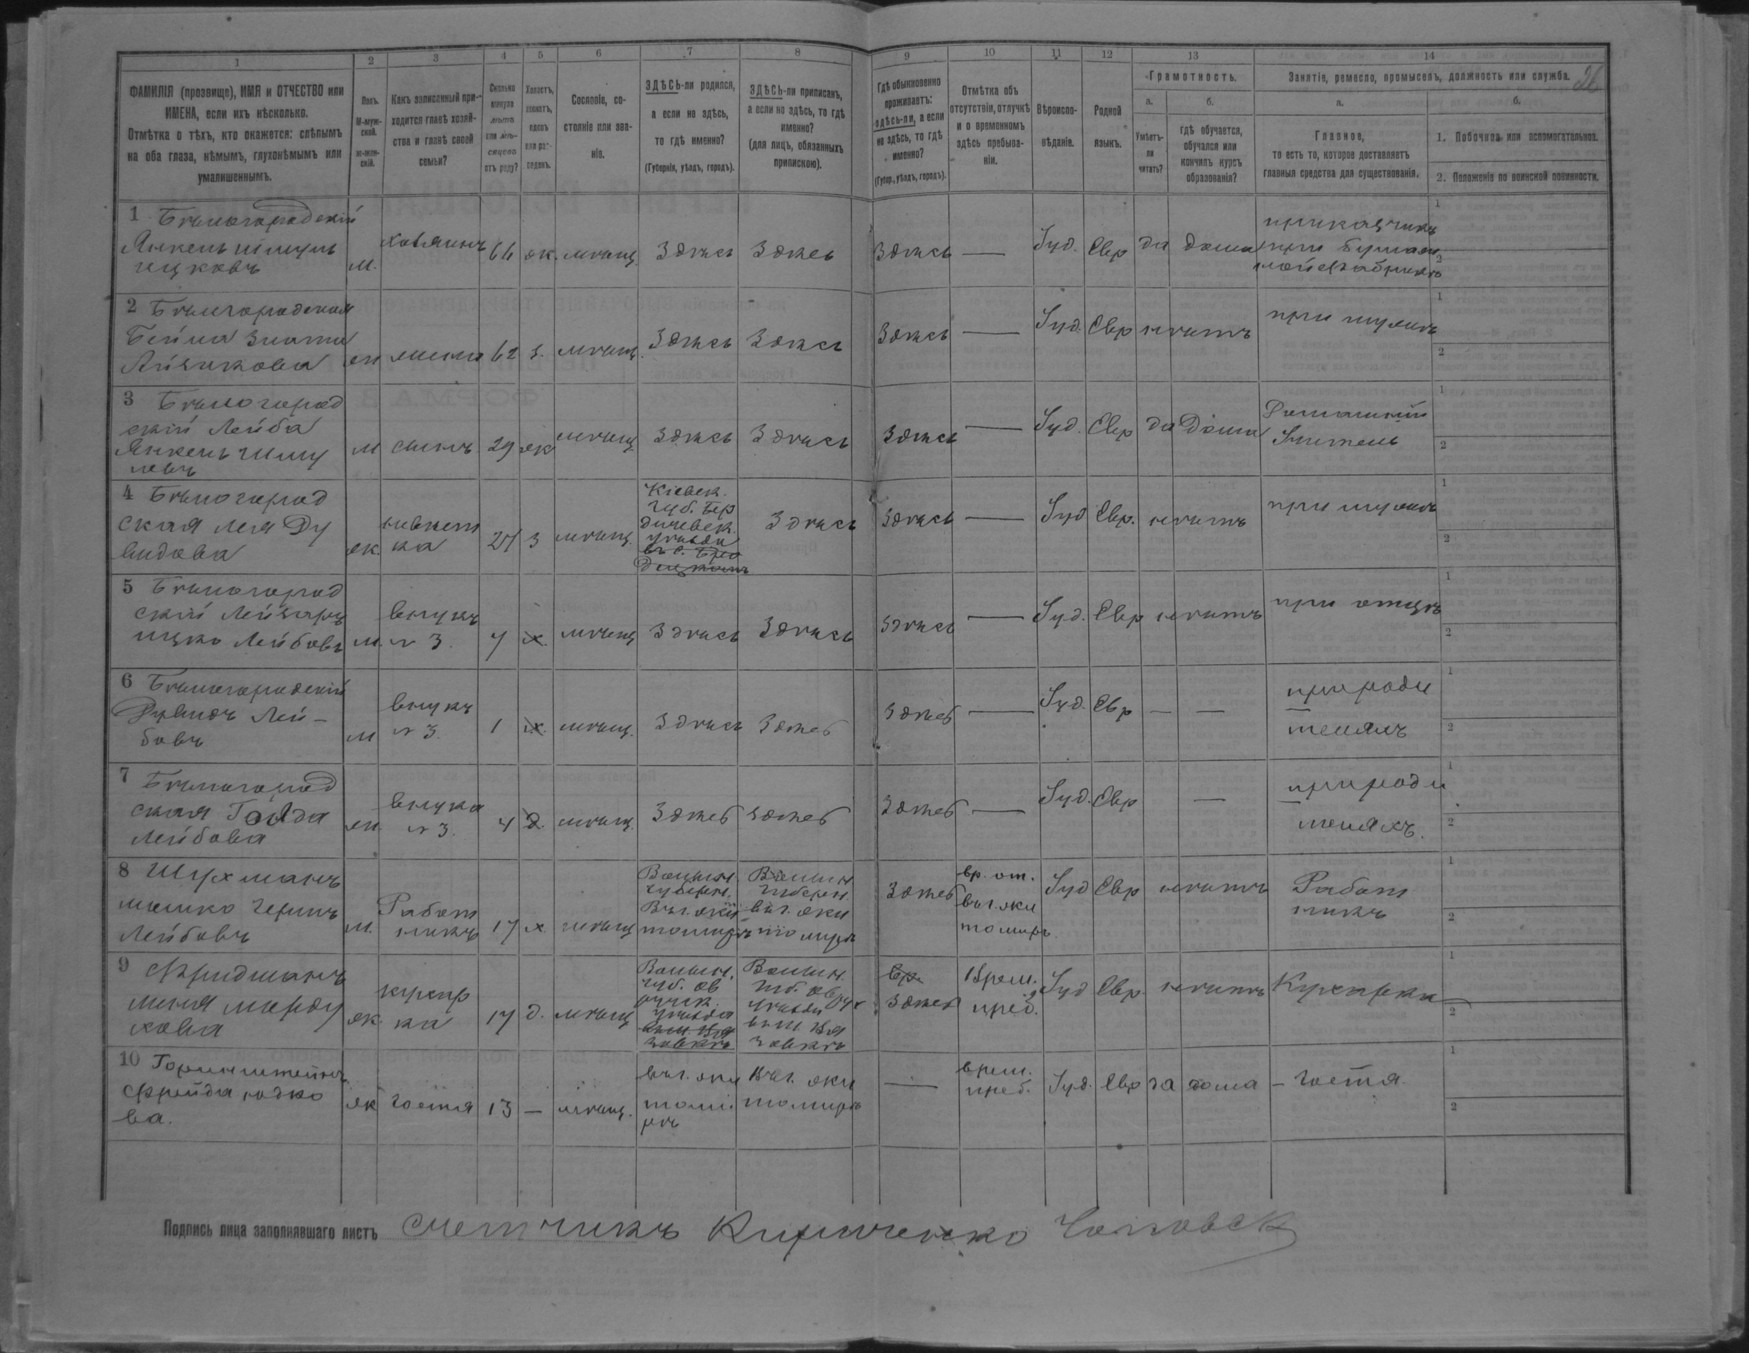 1 2 3 4 5 6 7 8 9 10 11 12 13 14
ФАМИЛІЯ (прозвище), ИМЯ и ОТЧЕСТВО или
ИМЕНА, если ихъ нѣсколько.
Отмѣтка о тѣхъ, кто окажется: слѣпымъ
на оба глаза, нѣмымъ, глухонѣмымъ или
умалишеннымъ.
Полъ.
М-муж-
ской.
Ж-жен-
скій.
Какъ записанный при-
ходится главѣ хозяй-
ства и главѣ своей
семьи?
Сколько
минуло
лѣтъ
или мѣ-
сяцевъ
отъ роду?
Холостъ,
женатъ,
вдовъ
или раз-
веденъ.
Сословіе, со-
стояніе или зва-
ніе.
ЗДѢСЬ-ли родился,
а если не здѣсь,
то гдѣ именно?
(Губернія, уѣздъ, городъ).
ЗДѢСЬ-ли приписанъ,
а если не здѣсь, то гдѣ
именно?
(для лицъ, обязанныхъ
припискою).
Гдѣ обыкновенно
проживаетъ:
здѣсь-ли, а если
не здѣсь, то гдѣ
именно?
(Губер., уѣздъ, городъ).
Отмѣтка объ
отсутствіи, отлучкѣ
и о временномъ
здѣсь пребыва-
ніи.
Вѣроиспо-
вѣданіе.
Родной
языкъ.
Грамотность.
а.
Умѣетъ-
ли
читать?
б.
гдѣ обучается,
обучался или
кончилъ курсъ
образованія?
Занятіе, ремесло, промыселъ, должность или служба.
а.
Главное,
то есть то, которое доставляетъ
главныя средства для существованія.
б.
1. Побочное или вспомогательное.
2. Положеніе по воинской повинности.
1 Бѣлогородскій
Янкель Шмуль
Ицковъ
м. хозяинъ 66 ж. мѣщ. Здѣсь Здѣсь Здѣсь — Іуд. Евр да дома
приказчикъ
при бумаж
ной фабрикѣ
2 Бѣлогородская
Бейла Злата
Айзикова
ж жена 62 з. мѣщ. Здѣсь Здѣсь Здѣсь — Іуд. Евр нѣтъ при мужѣ
3 Бѣлогород
скій Лейба
Янкель Шму
левъ
м сынъ 29 ж мѣщ. Здѣсь Здѣсь Здѣсь — Іуд. Евр да Дома
4 Бѣлогород
ская Лея Ду
видова
ж. невѣст
ка 27 з мѣщ.
Кіевск.
губ. Бер
дичевск
уѣзда
Здѣсь Здѣсь — Іуд Евр. нѣтъ при мужѣ
5 Бѣлогород
скій Лейзеръ
Ицко Лейбовъ
м. внукъ
№ 3. 7 х. мѣщ Здѣсь Здѣсь Здѣсь — Іуд. Евр нѣтъ при отцѣ
6 Бѣлогородскій
Дувидъ Лей-
бовъ
м внукъ
№ 3. 1 х. мѣщ. Здѣсь Здѣсь Здѣсь — Іуд. Евр — —
при роди
теляхъ
7 Бѣлогород
ская Голда
Лейбова
ж. внука
№ 3. 4 д. мѣщ. Здѣсь Здѣсь Здѣсь — Іуд. Евр —
при роди
теляхъ.
8 Шухманъ
Мошко Гершъ
Лейбовъ
м. Работ
никъ 17 х. мѣщ
Волын.
губерн.
въ г. Жи
томирѣ
Волын
губерн.
въ г. Жи
томирѣ
Здѣсь
вр. от.
въ г. Жи
томиръ
Іуд Евр нѣтъ
Работ
никъ
9 Фридманъ
Миля Морду
хова
ж. кухар
ка 17 д. мѣщ
Волын.
губ. Ов
ручск.
уѣзда
Волын.
губ. Овруч
уѣзда
Здѣсь
Врем.
преб.
Іуд Евр. нѣтъ Кухарка
10 Горинштейнъ
Фрейда
ва.
ж гостя 13 — мѣщ.
въ г. Жи
томи
рѣ
въ г. Жи
томирѣ
—
врем.
преб.
Іуд. Евр да дома — гостя
Подпись лица заполнявшаго листъ Счетчикъ Кириченко